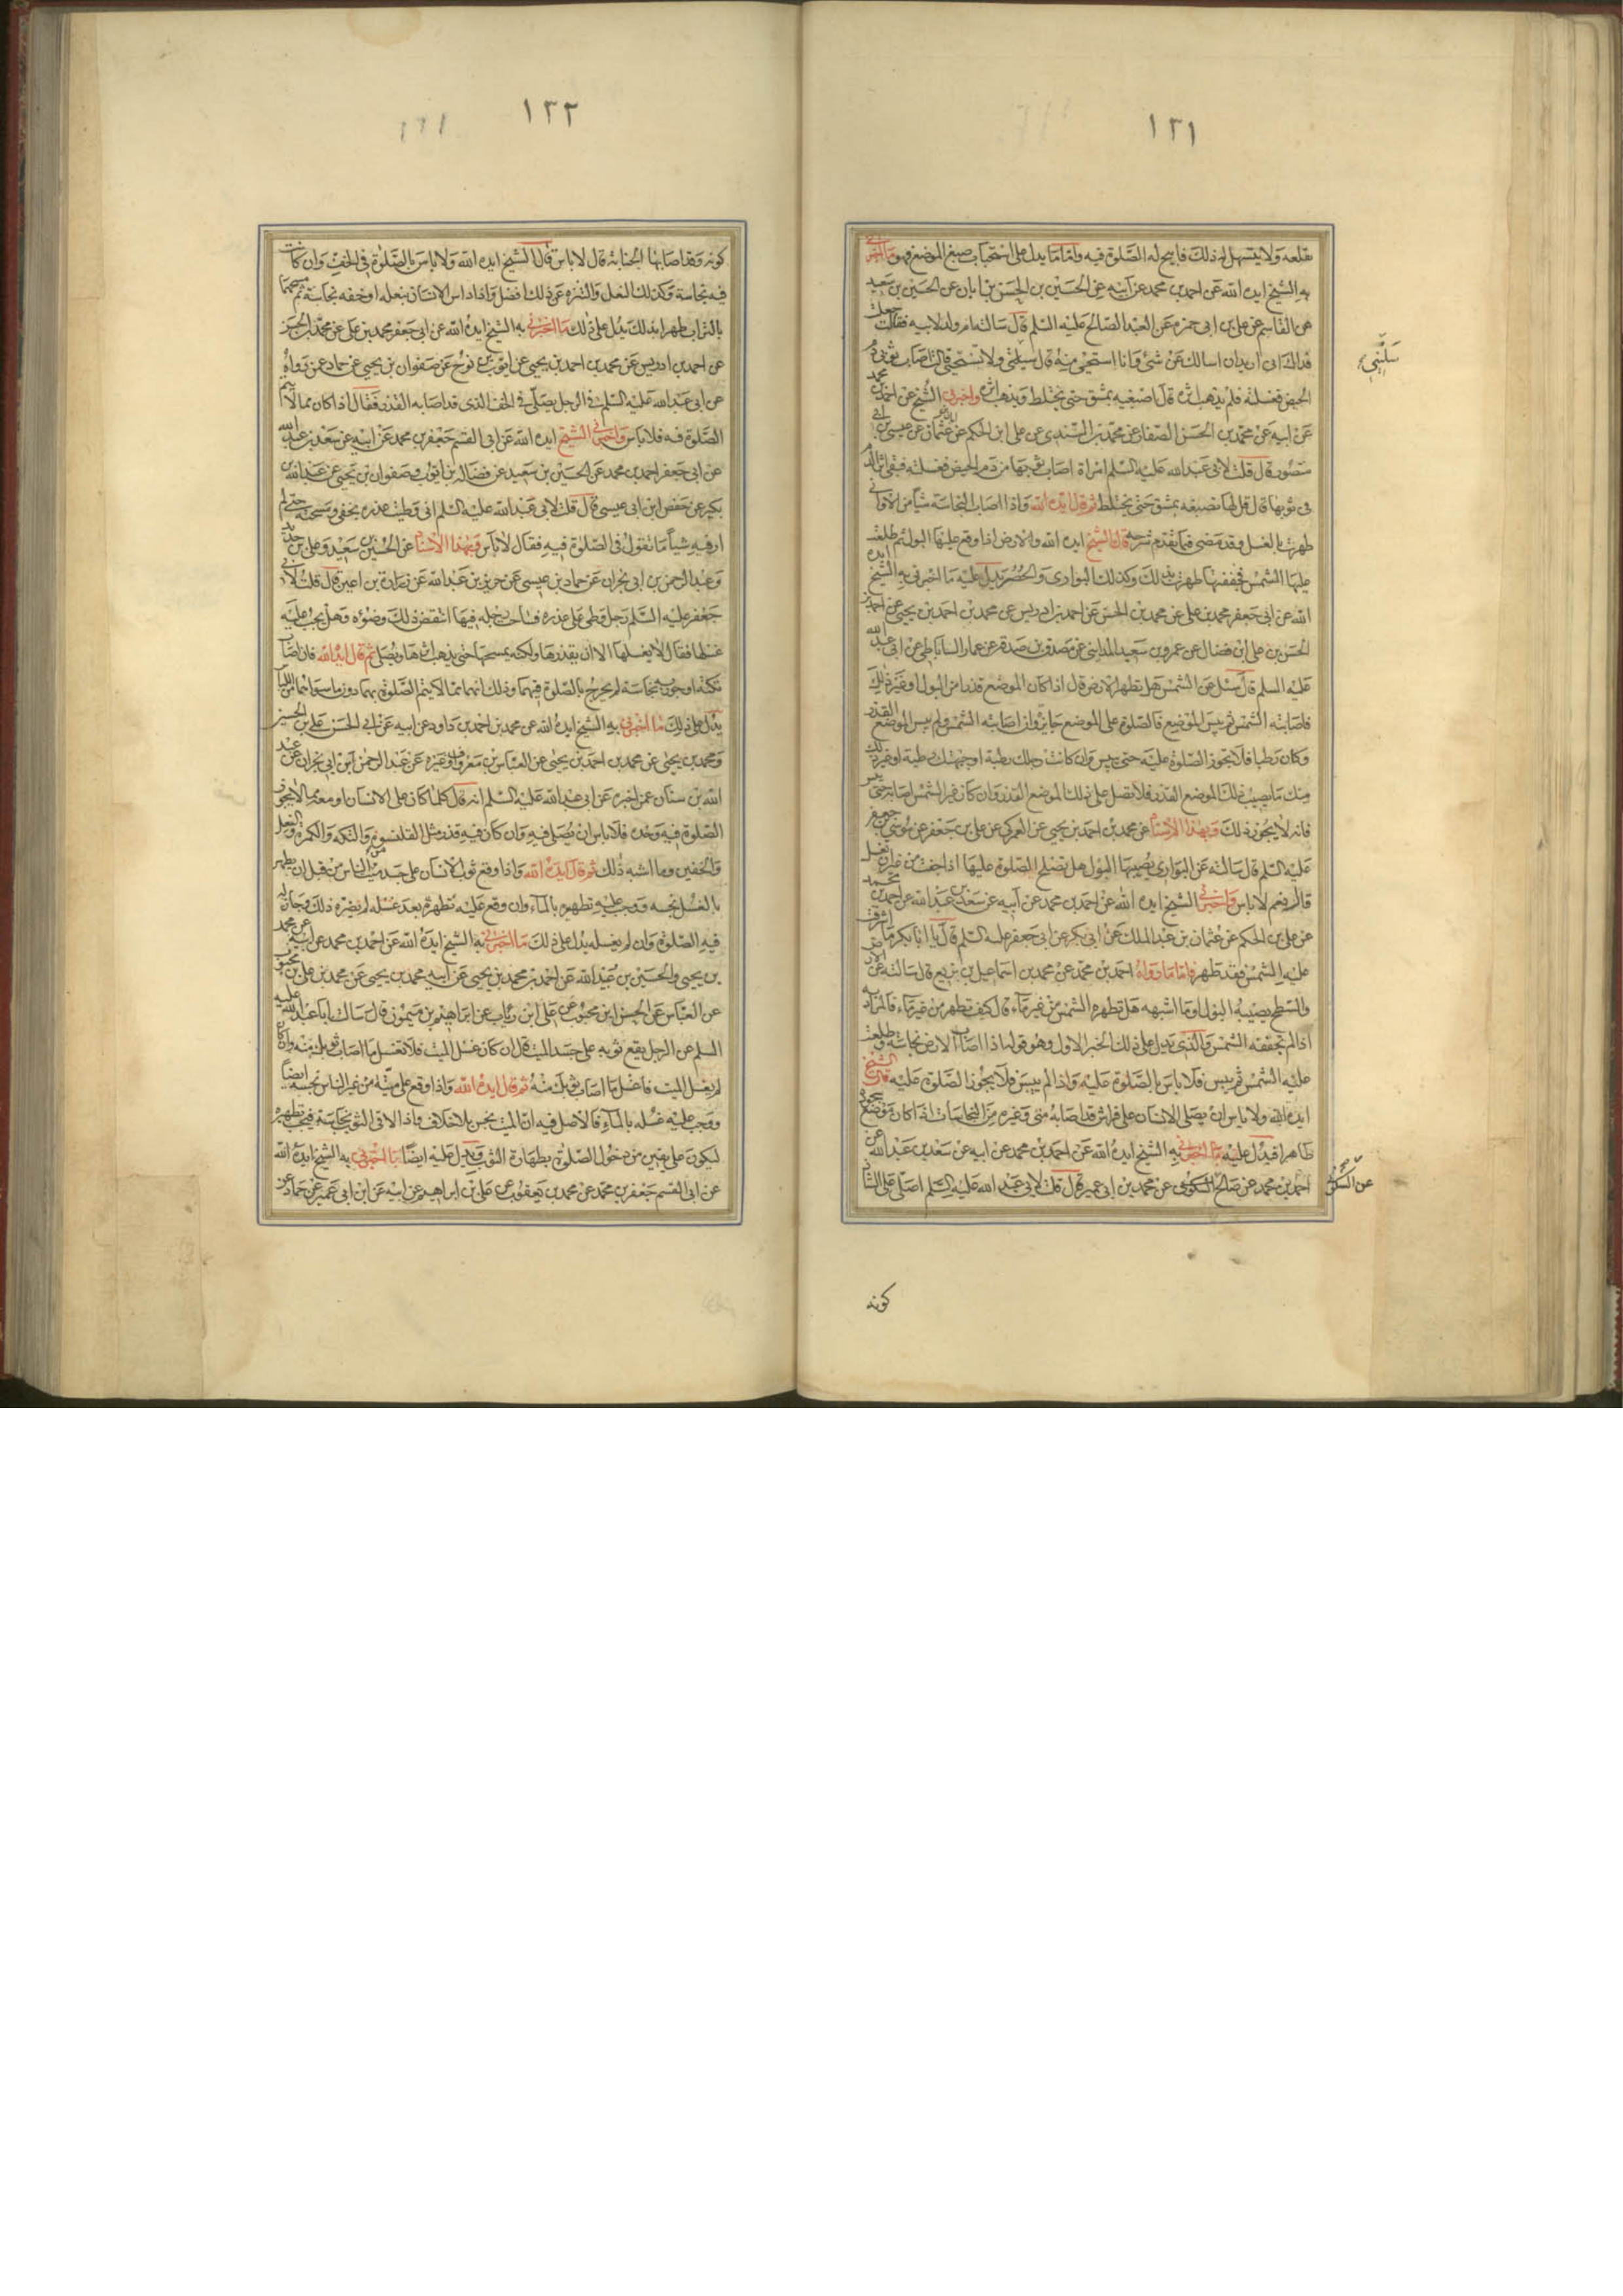 ١٢١
قلعه ولا يتسهل له ذلك فابيح له الصلوة فيه واما ما يدل على استحباب صبغ الموضع فهو ما اخبرني
به الشيخ ايده الله عن احمد بن محمد عن ابيه عن الحسين بن الحسن بن ابان عن الحسين بن سعيد
عن القاسم عن علي بن ابي حمزه عن العبد الصالح عليه السلم قال سالته ام ولد لابيه فقالت جعلت
فداك اني اريد ان اسالك عن شئ وانا استحيي منه قال سليني ولا تستحيي قالت اصاب ثوبي دم
سَليني
الحيض فغسلته فلم يذهب اثره قال اصبغيه بمشق حتى يختلط ويذهب اثره واخبرني الشيخ عن احمد بن محمد
عن ابيه عن محمد بن الحسن الصفار عن محمد بن السندي عن علي ابن الحكم عن عثمان عن عيسى بن ابي
منصور قال قلت لابي عبد الله عليه السلم امراة اصاب ثوبها من دم الحيض فغسلته فبقي اثر الدم
في ثوبها قال قل لها تصبغه بمشق حتى يختلط ثم قال ايده الله واذا اصاب النجاسة شيأ من الاواني
طهرت بالغسل وقد مضى فيما تقدم شرحه قال الشيخ ايده الله والارض اذا وقع عليها البول ثم طلعت
عليها الشمس فجففتها طهرت بذلك وكذلك البواري والحصر يدل عليه ما اخبرني به الشيخ ايده
الله عن ابي جعفر محمد بن علي عن محمد بن الحسن عن احمد بن ادريس عن محمد بن احمد بن يحيى عن احمد بن
الحسن بن علي ابن فضال عن عمرو بن سعيد المدايني عن مصدق بن صدقه عن عمار الساباطي عن ابي عبد الله
عليه السلم قال سئل عن الشمس هل تطهر الارض قال اذا كان الموضع قذرا من البول او غير ذلك
فاصابته الشمس ثم يبس الموضع فالصلوة على الموضع جايزة وان اصابته الشمس ولم يبس الموضع القذر
وكان رطبا فلا يجوز الصلوة عليه حتى ييبس وان كانت رجلك رطبة او جبهتك رطبة او غير ذلك
منك ما يصيب ذلك الموضع القذر فلا تصل على ذلك الموضع القذر وان كان غير الشمس اصابه حتى ييبس
فانه لا يجوز ذلك وبهذا الاسناد عن محمد بن احمد بن يحيى عن العمركي عن علي بن جعفر عن موسى بن جعفر
عليه السلم قال سالته عن البواري يصيبها البول هل تصلح الصلوة عليها اذا جفت من غير ان تغسل
قال نعم لا باس واخبرني الشيخ ايده الله عن احمد بن محمد عن ابيه عن سعد بن عبد الله عن احمد بن محمد
عن علي بن الحكم عن عثمان بن عبد الملك عن ابي بكر عن ابي جعفر عليه السلم قال يا ابا بكر ما اشرقت
عليه الشمس فقد طهر فاما ما رواه احمد بن محمد عن محمد بن اسماعيل بن بزيع قال سالته عن الارض
والسطح يصيبه البول او ما اشبهه هل تطهره الشمس من غير ماء قال كيف تطهر من غير ماء فالمراد به
اذا لم تجففه الشمس والذي يدل على ذلك الخبر الاول وهو قوله اذا اصاب الارض نجاسة وطلعت
عليه الشمس ثم يبس فلا باس بالصلوة عليه واذا لم ييبس فلا يجوز الصلوة عليه قال الشيخ
ايده الله ولا باس ان يصلي الانسان على فراش قد اصابه مني وغيره من النجاسات اذا كان موضع سجوده
طاهرا فيدل عليه ما اخبرني به الشيخ ايده الله عن احمد بن محمد عن ابيه عن سعد بن عبد الله عن
احمد بن محمد عن صالح السكوني عن محمد بن ابي عمير قال قلت لابي عبد الله عليه السلم اصلي على الشاذ
عن السكوني
كونه
١٢٢
كونه وقد اصابتها الجنابة قال لا باس قال الشيخ ايده الله ولا باس بالصلوة في الخف وان كانت
فيه نجاسة وكذلك النعل والتنزه عن ذلك افضل واذا داس الانسان بنعله او خفه نجاسة ثم مسحهما
بالتراب طهرا بذلك يدل على ذلك ما اخبرني به الشيخ ايده الله عن ابي جعفر محمد بن علي عن محمد بن الحسن
عن احمد بن ادريس عن محمد بن احمد بن يحيى عن ايوب بن نوح عن صفوان بن يحيى عن حماد عمن رواه
عن ابي عبد الله عليه السلم في الرجل يصلي في الخف الذي قد اصابه القذر فقال اذا كان مما لا تتم
الصلوة فيه فلا باس واخبرني الشيخ ايده الله عن ابي القسم جعفر بن محمد عن ابيه عن سعد بن عبد الله
عن ابي جعفر احمد بن محمد عن الحسين بن سعيد عن فضالة بن ايوب وصفوان بن يحيى عن عبد الله بن
بكير عن حفص ابن ابي عيسى قال قلت لابي عبد الله عليه السلم اني وطيت عذره بخفي ومسحته حتى لم
ار فيه شيأ ما تقول في الصلوة فيه فقال لا باس وبهذا الاسناد عن الحسين بن سعيد وعلي بن حديد
وعبد الرحمن بن ابي نجران عن حماد بن عيسى عن حريز بن عبد الله عن زرارة بن اعين قال قلت لابي
جعفر عليه السلم رجل وطئ على عذره فساخت رجله فيها اينقض ذلك وضوءه وهل يجب عليه
غسلها فقال لا يغسلها الا ان يقذرها ولكنه يمسحها حتى يذهب اثرها ويصلي ثم قال ايده الله فان اصاب
تكته او جوربه نجاسة لم يحرج بالصلوة فيهما وذلك انهما مما لا يتم الصلوة بهما دون ما سواهما من اللباس
يدل على ذلك ما اخبرني به الشيخ ايده الله عن محمد بن احمد بن داود عن ابيه عن ابي الحسن علي بن الحسين
ومحمد بن يحيى عن محمد بن احمد بن يحيى عن العباس بن معروف او غيره عن عبد الرحمن ابن ابي نجران عن عبد
الله بن سنان عمن اخبره عن ابي عبد الله عليه السلم انه قال كلما كان على الانسان او معه مما لا يجوز
الصلوة فيه وحده فلا باس ان يصلي فيه وان كان فيه قذر مثل القلنسوه والتكه والكمره والنعل
والخفين وما اشبه ذلك ثم قال ايده الله واذا وقع ثوب الانسان على جسد ميت من الناس من قبل ان يطهر
بالغسل نجسه ووجب عليه تطهيره بالماء وان وقع عليه تطهره بعد غسله لم يضره ذلك وجازت له
فيه الصلوة وان لم يغسله يدل على ذلك ما اخبرني به الشيخ ايده الله عن احمد بن محمد عن ابيه عن محمد
بن يحيى والحسين بن عبيد الله عن احمد بن محمد بن يحيى عن ابيه محمد بن يحيى عن محمد بن علي بن محبوب
عن العباس عن الحسن ابن محبوب عن علي ابن رئاب عن ابراهيم بن ميمون قال سالت ابا عبد الله عليه
السلم عن الرجل يقع ثوبه على جسد الميت قال ان كان غسل الميت فلا تغسل ما اصاب ثوبك منه وان كان
لم يغسل الميت فاغسل ما اصاب ثوبك منه ثم قال ايده الله واذا وقع على ميتة من غير الناس نجسه ايضا
ووجب عليه غسله بالماء فالاصل فيه ان الميت نجس بلا خلاف فاذا لاقى الثوب نجاسته فيجب تطهيره
ليكون على يقين من دخول الصلوة بطهارة الثوب ويدل عليه ايضا ما اخبرني به الشيخ ايده الله
عن ابي القسم جعفر بن محمد عن محمد بن يعقوب عن علي بن ابراهيم عن ابيه عن ابن ابي عمير عن حماد عن